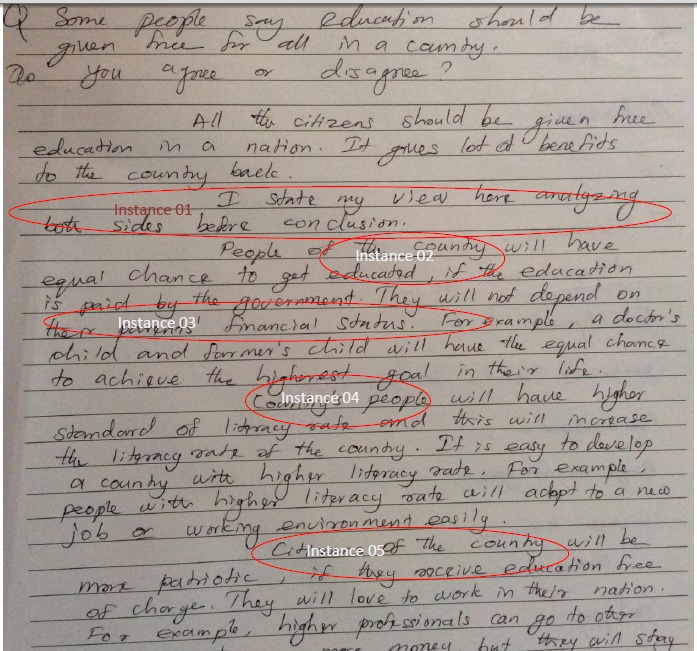 Q Some people say education should be
given free for all in a country.
Do you agree or disagree?
All the citizens should be given free
education in a nation. It gives lot of benefits
to the country back.
I state my view here analyzing
Instance 01
both sides before conclusion.
People of the country will have
Instance 02
equal chance to get educated, if the education
is paid by the government. They will not depend on
their parents' financial status. For example, a doctor's
Instance 03
child and farmer's child will have the equal chance
to achieve the higherest goal in their life.
Country's people will have higher
Instance 04
standard of literacy rate and this will increase
the literacy rate of the country. It is easy to develop
a country with higher literacy rate. For example,
people with higher literacy rate will adopt to a new
job or working environment easily.
of the country will be
Instance 05
more patriotic, if they receive education free
of charge. They will love to work in their nation.
For example, higher professionals can go to other
more money but they will stay